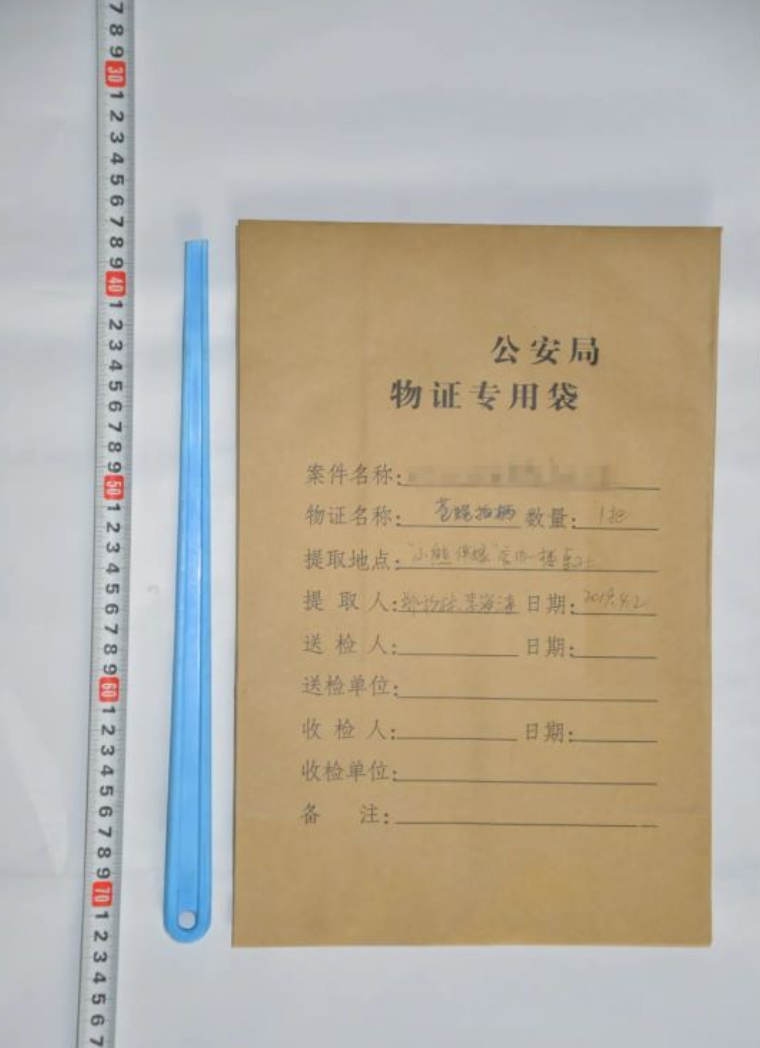 7
8
9
30
1
2
3
4
5
6
7
8
9
40
1
2
3
4
5
6
7
8
9
50
1
2
3
4
5
6
7
8
9
60
1
2
3
4
5
6
7
8
9
70
1
2
3
4
5
6
7
公安局
物证专用袋
案件名称:
物证名称: 苍蝇拍柄 数量: 1把
提取地点: "小熊 店内一楼桌子上
提取人: 日期: 2019.4.2
送检人: 日期:
送检单位:
收检人: 日期:
收检单位:
备 注: